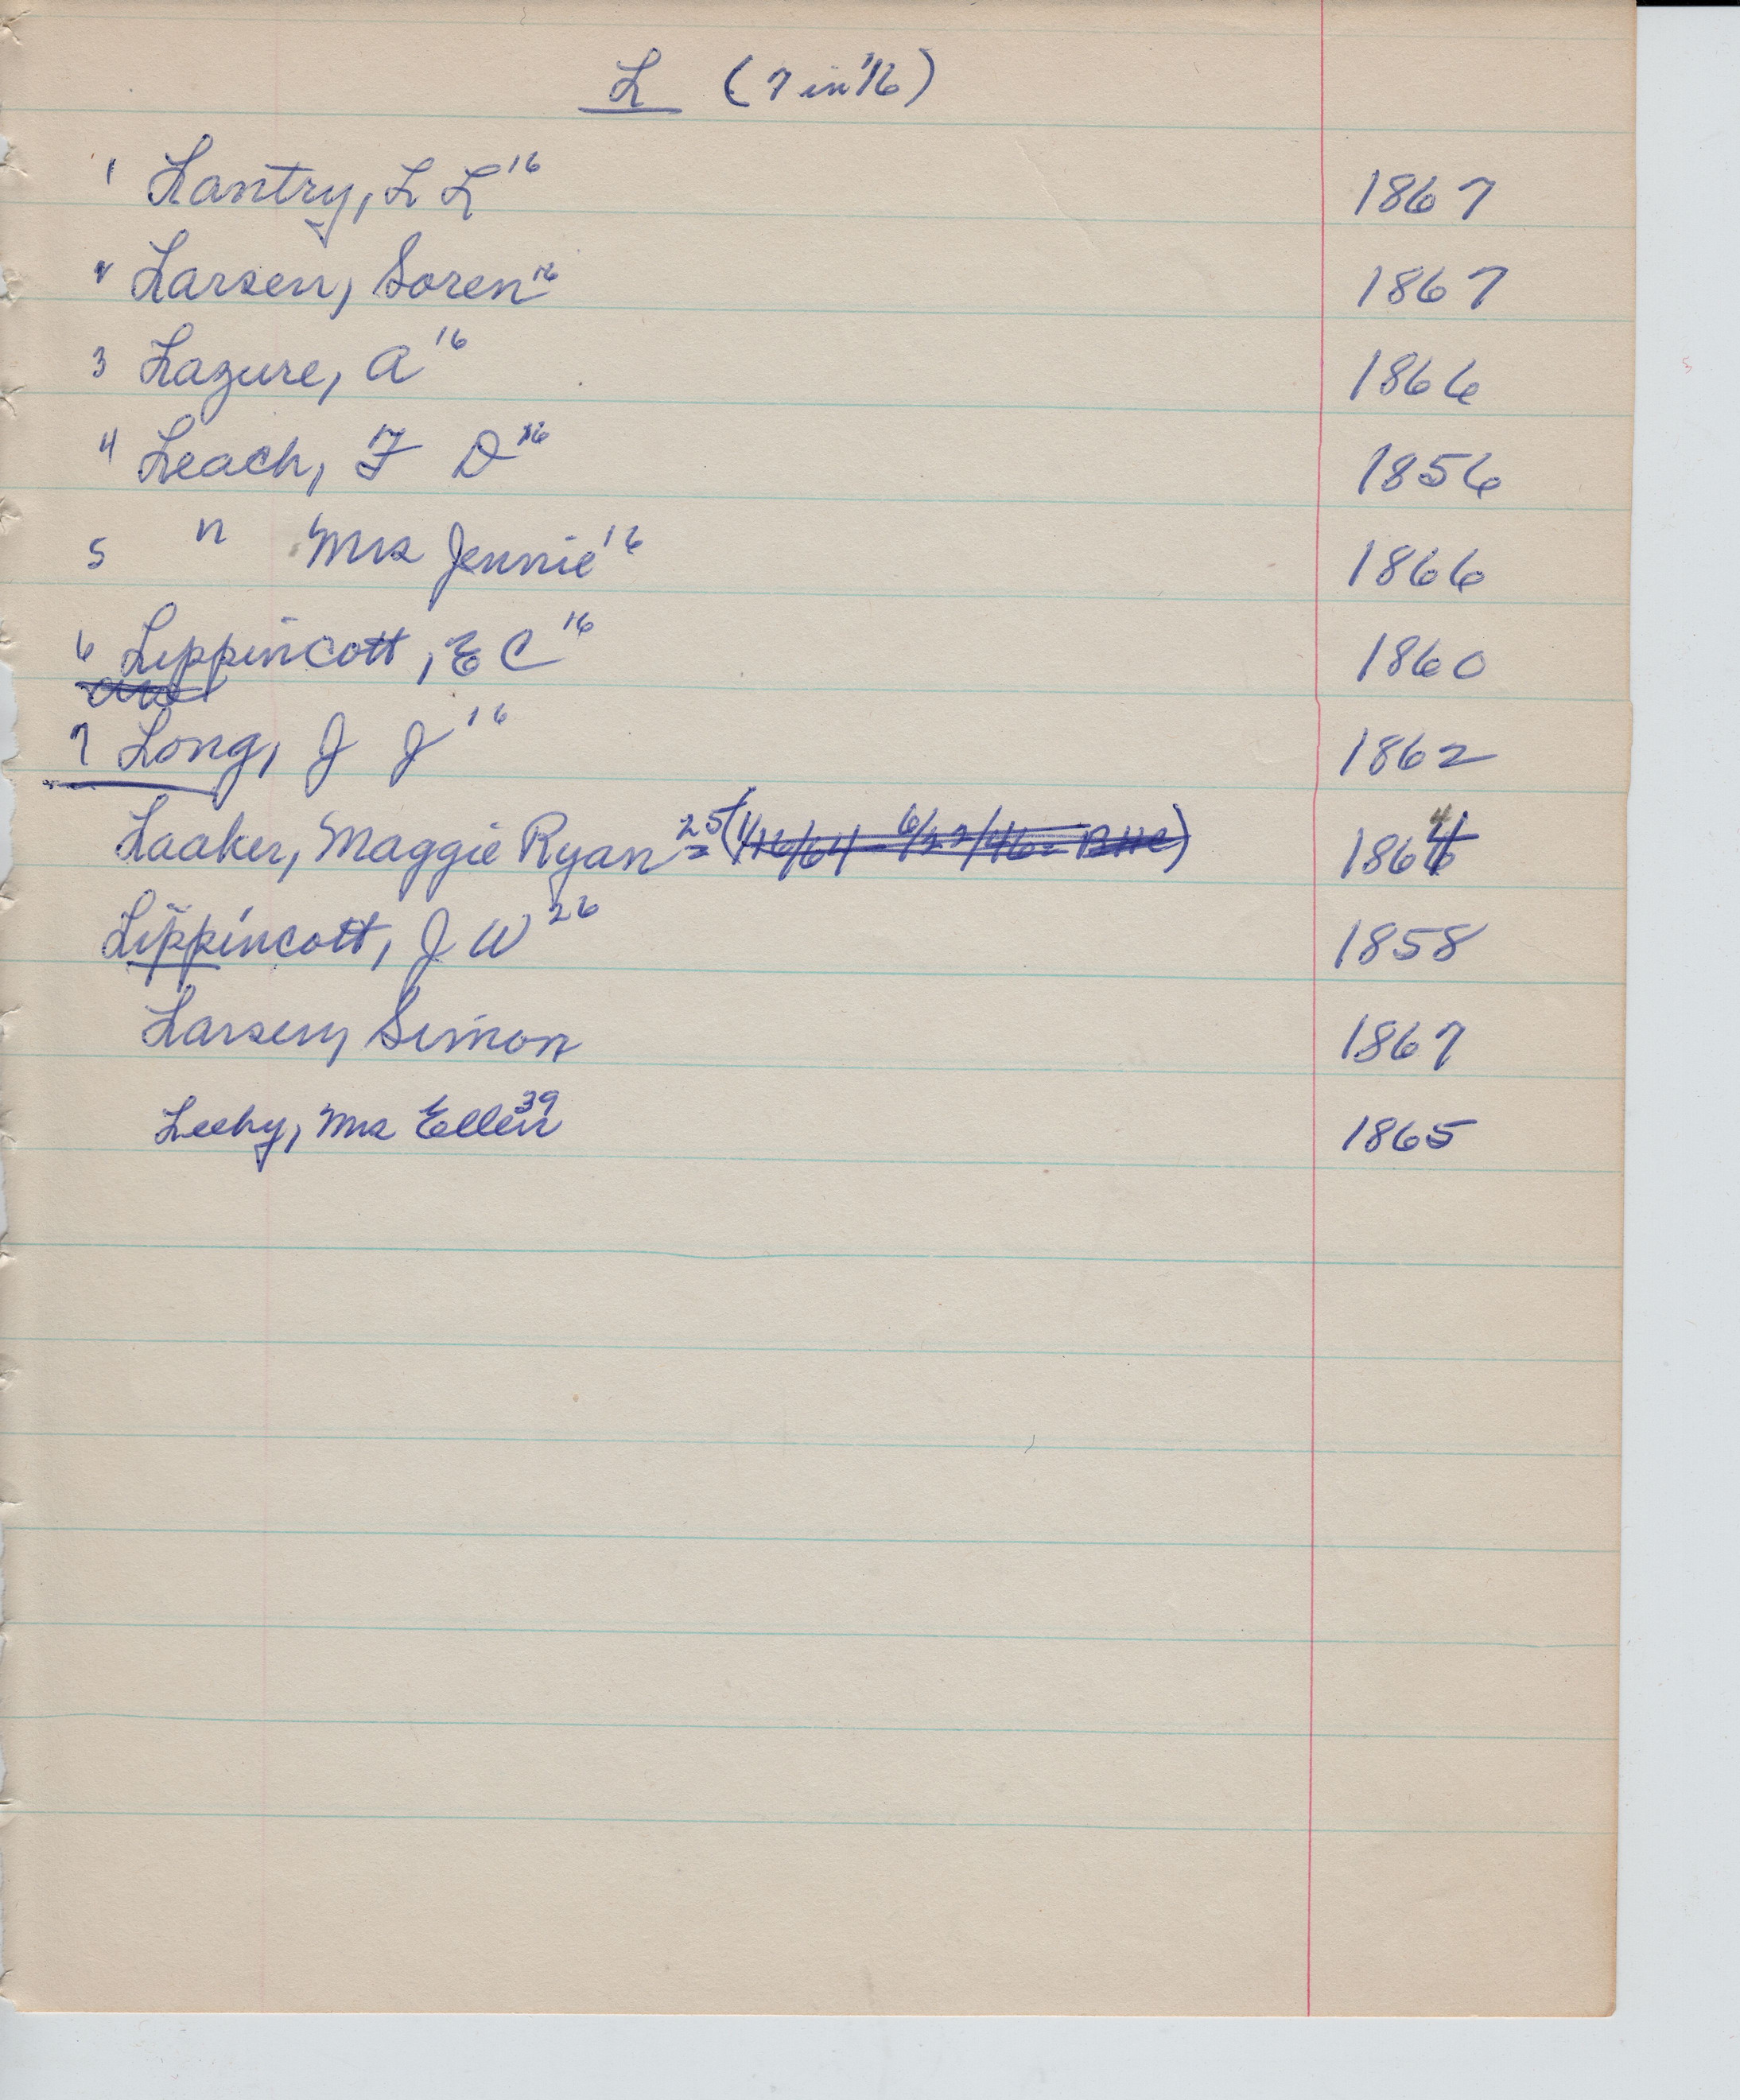 L (7 in '16)
1 Lantry, L L 16 1867
2 Larsen, Soren 16 1867
3 Lazure, A 16 1866
4 Leach, F D 16 1856
5 " Mrs Jennie 16 1866
6 Lippincott, E C 16 1860
7 Long, J J 16 1862
Laaker, Maggie Ryan 25 (1/16/64 - 6/27/46 = BHC) 1864
Lippincott, J W 26 1858
Larsen, Simon 1867
Leehy, Mrs Ellen 39 1865